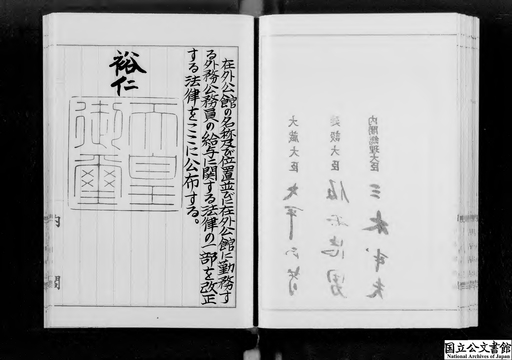 在外公館の名称及び位置並びに在外公館に勤務す
る外務公務員の給与に関する法律の一部を改正
する法律をここに公布する。
裕仁
天皇
御璽
内閣
内閣総理大臣 三木武夫
大蔵大臣 大平正芳
国立公文書館
National Archives of Japan